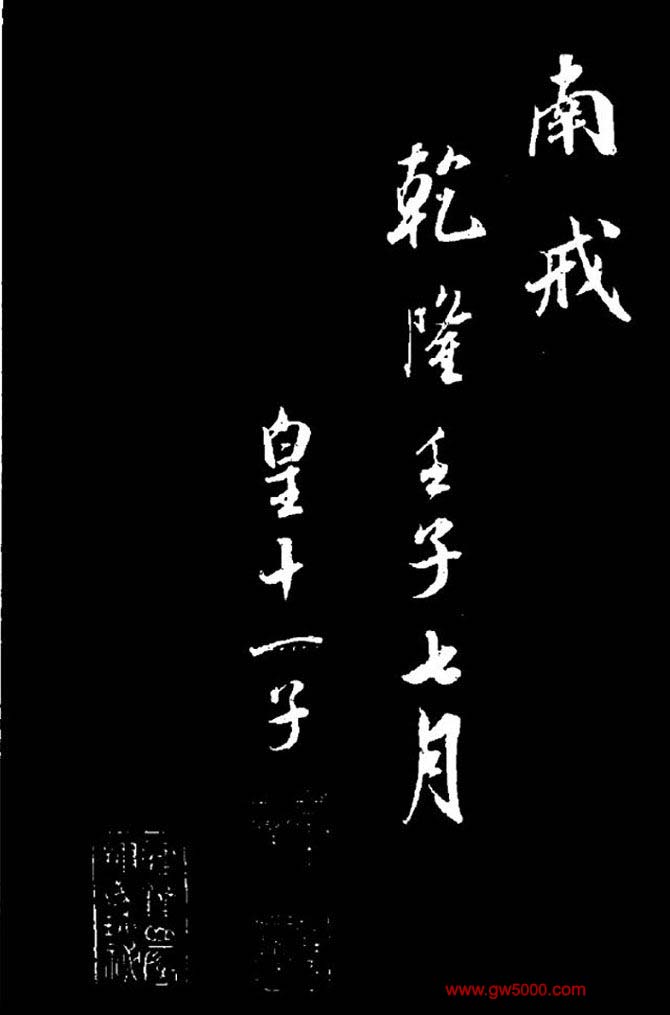 南戒
乾隆壬子七月
皇十一子
www.gw5000.com